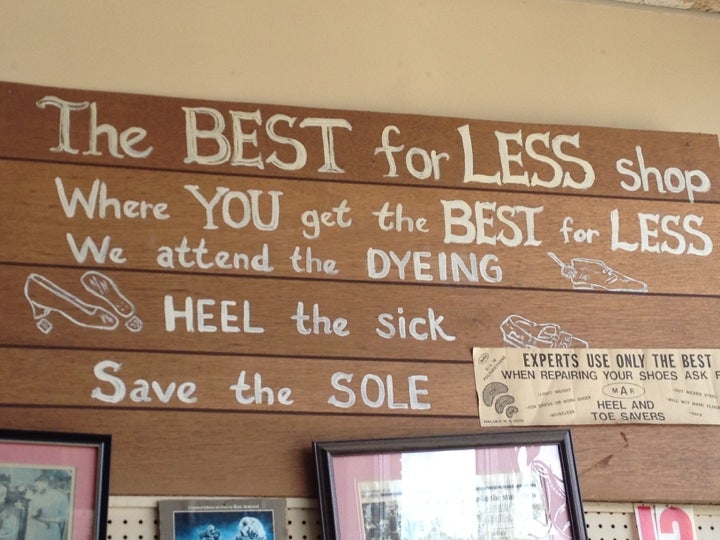 The BEST for LESS shop
Where YOU get the BEST for LESS
We attend the DYEING
HEEL the sick
Save the SOLE
EXPERTS USE ONLY THE BEST
WHEN REPAIRING YOUR SHOES ASK F
MAR
HEEL AND
TOE SAVERS